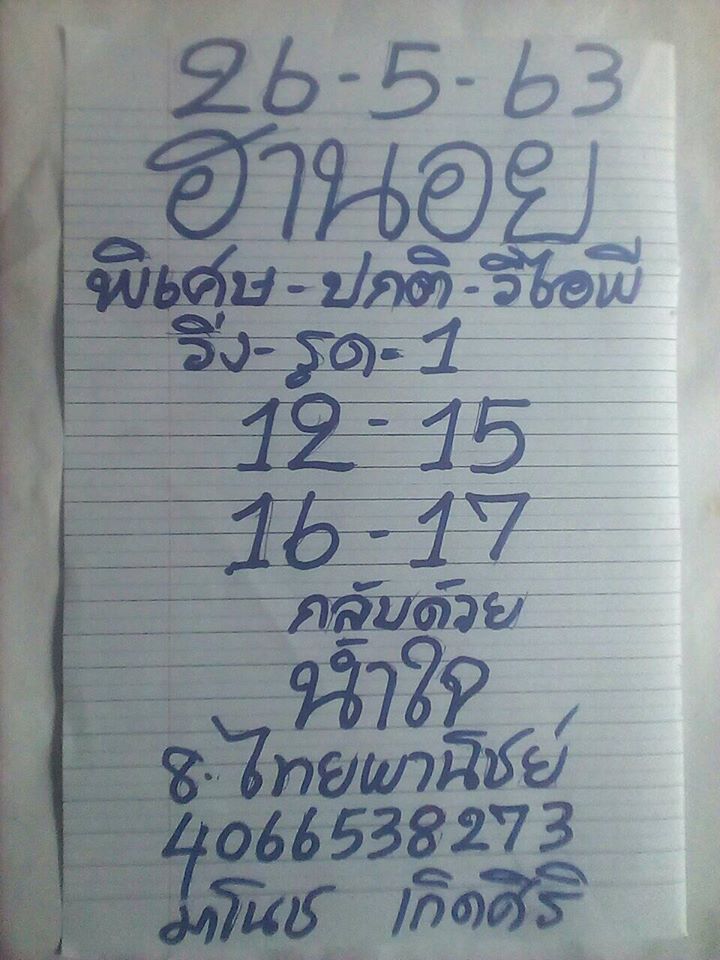 26-5-63
ฮานอย
พิเศษ-ปกติ-วีไอพี
วิ่ง-รูด-1
12-15
16-17
กลับด้วย
น้ำใจ
ธ.ไทยพานิชย์
4066538273
มาโนช เกิดศิริ